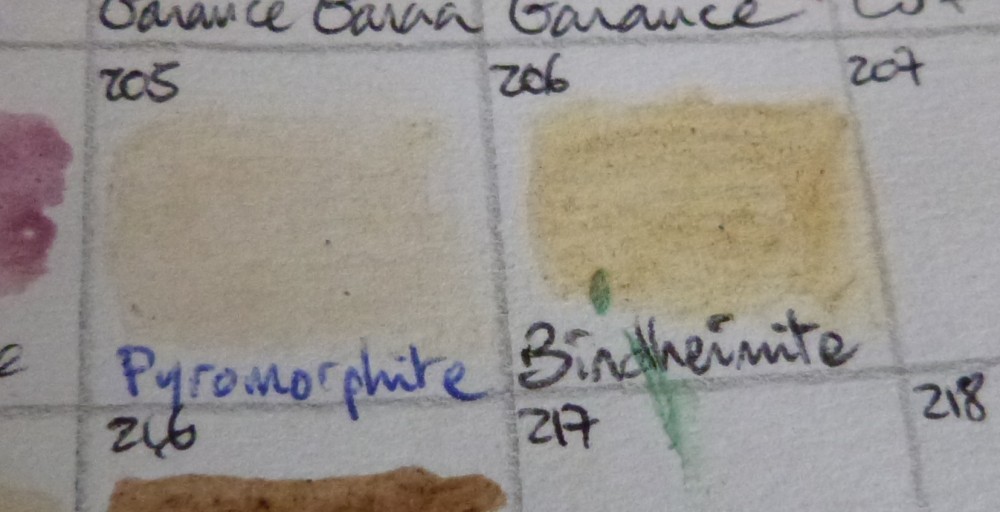 Garance Garan Garance
205 206 207
Pyromorphite Bindheimite
216 217 218